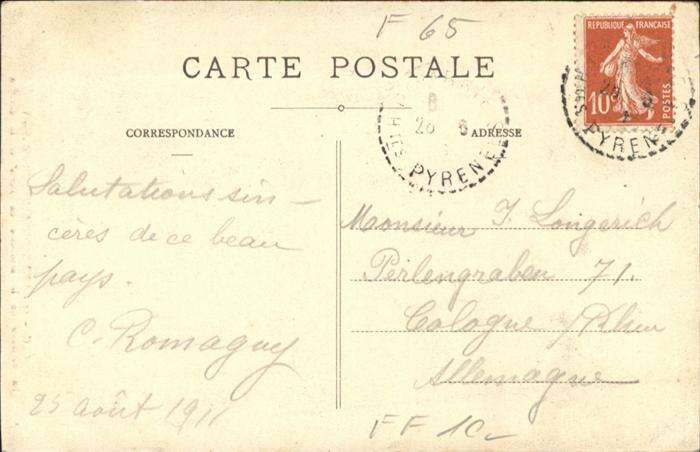 F 65
REPUBLIQUE FRANCAISE
10c
POSTES
CARTE POSTALE
CORRESPONDANCE
ADRESSE
26 8
PYRENEES
PYREN
Salutations sin-
cères de ce beau
pays.
C. Romaguy
25 août 1911
Monsieur J. Longerich
Perlengraben 71.
Cologne s/Rhein
Allemagne
FF 10